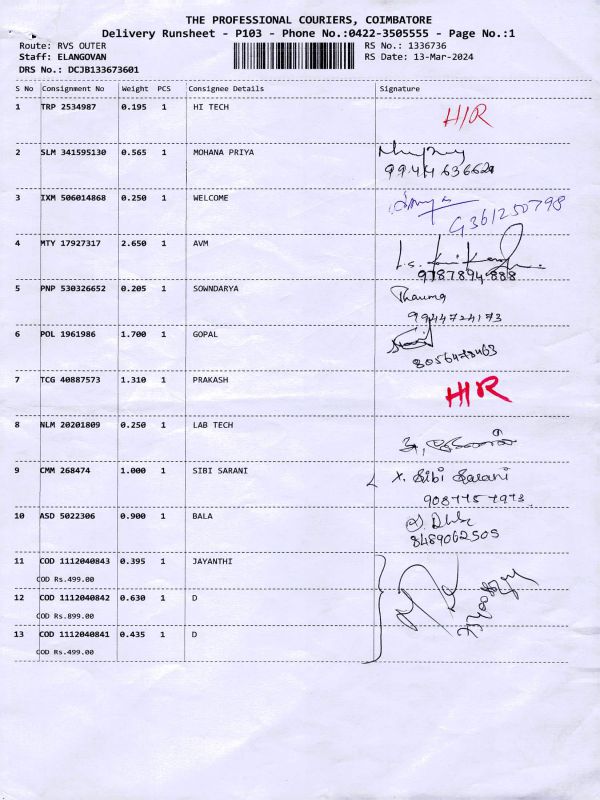 THE PROFESSIONAL COURIERS, COIMBATORE
Delivery Runsheet - P103 - Phone No.:0422-3505555 - Page No.:1
Route: RVS OUTER RS No.: 1336736
Staff: ELANGOVAN RS Date: 13-Mar-2024
DRS No.: DCJB133673601
S No Consignment No Weight PCS Consignee Details Signature
1 TRP 2534987 0.195 1 HI TECH H/R
2 SLM 341595130 0.565 1 MOHANA PRIYA
3 IXM 506014868 0.250 1 WELCOME
G361250798
4 MTY 17927317 2.650 1 AVM
9787894888
5 PNP 530326652 0.205 1 SOWNDARYA
9944724173
6 POL 1961986 1.700 1 GOPAL
8056478463
7 TCG 40887573 1.310 1 PRAKASH H/R
8 NLM 20201809 0.250 1 LAB TECH
9 CMM 268474 1.000 1 SIBI SARANI X. Sibi Sarani
10 ASD 5022306 0.900 1 BALA
8489062505
11 COD 1112040843 0.395 1 JAYANTHI
COD Rs.499.00
12 COD 1112040842 0.630 1 D
COD Rs.899.00
13 COD 1112040841 0.435 1 D
COD Rs.499.00